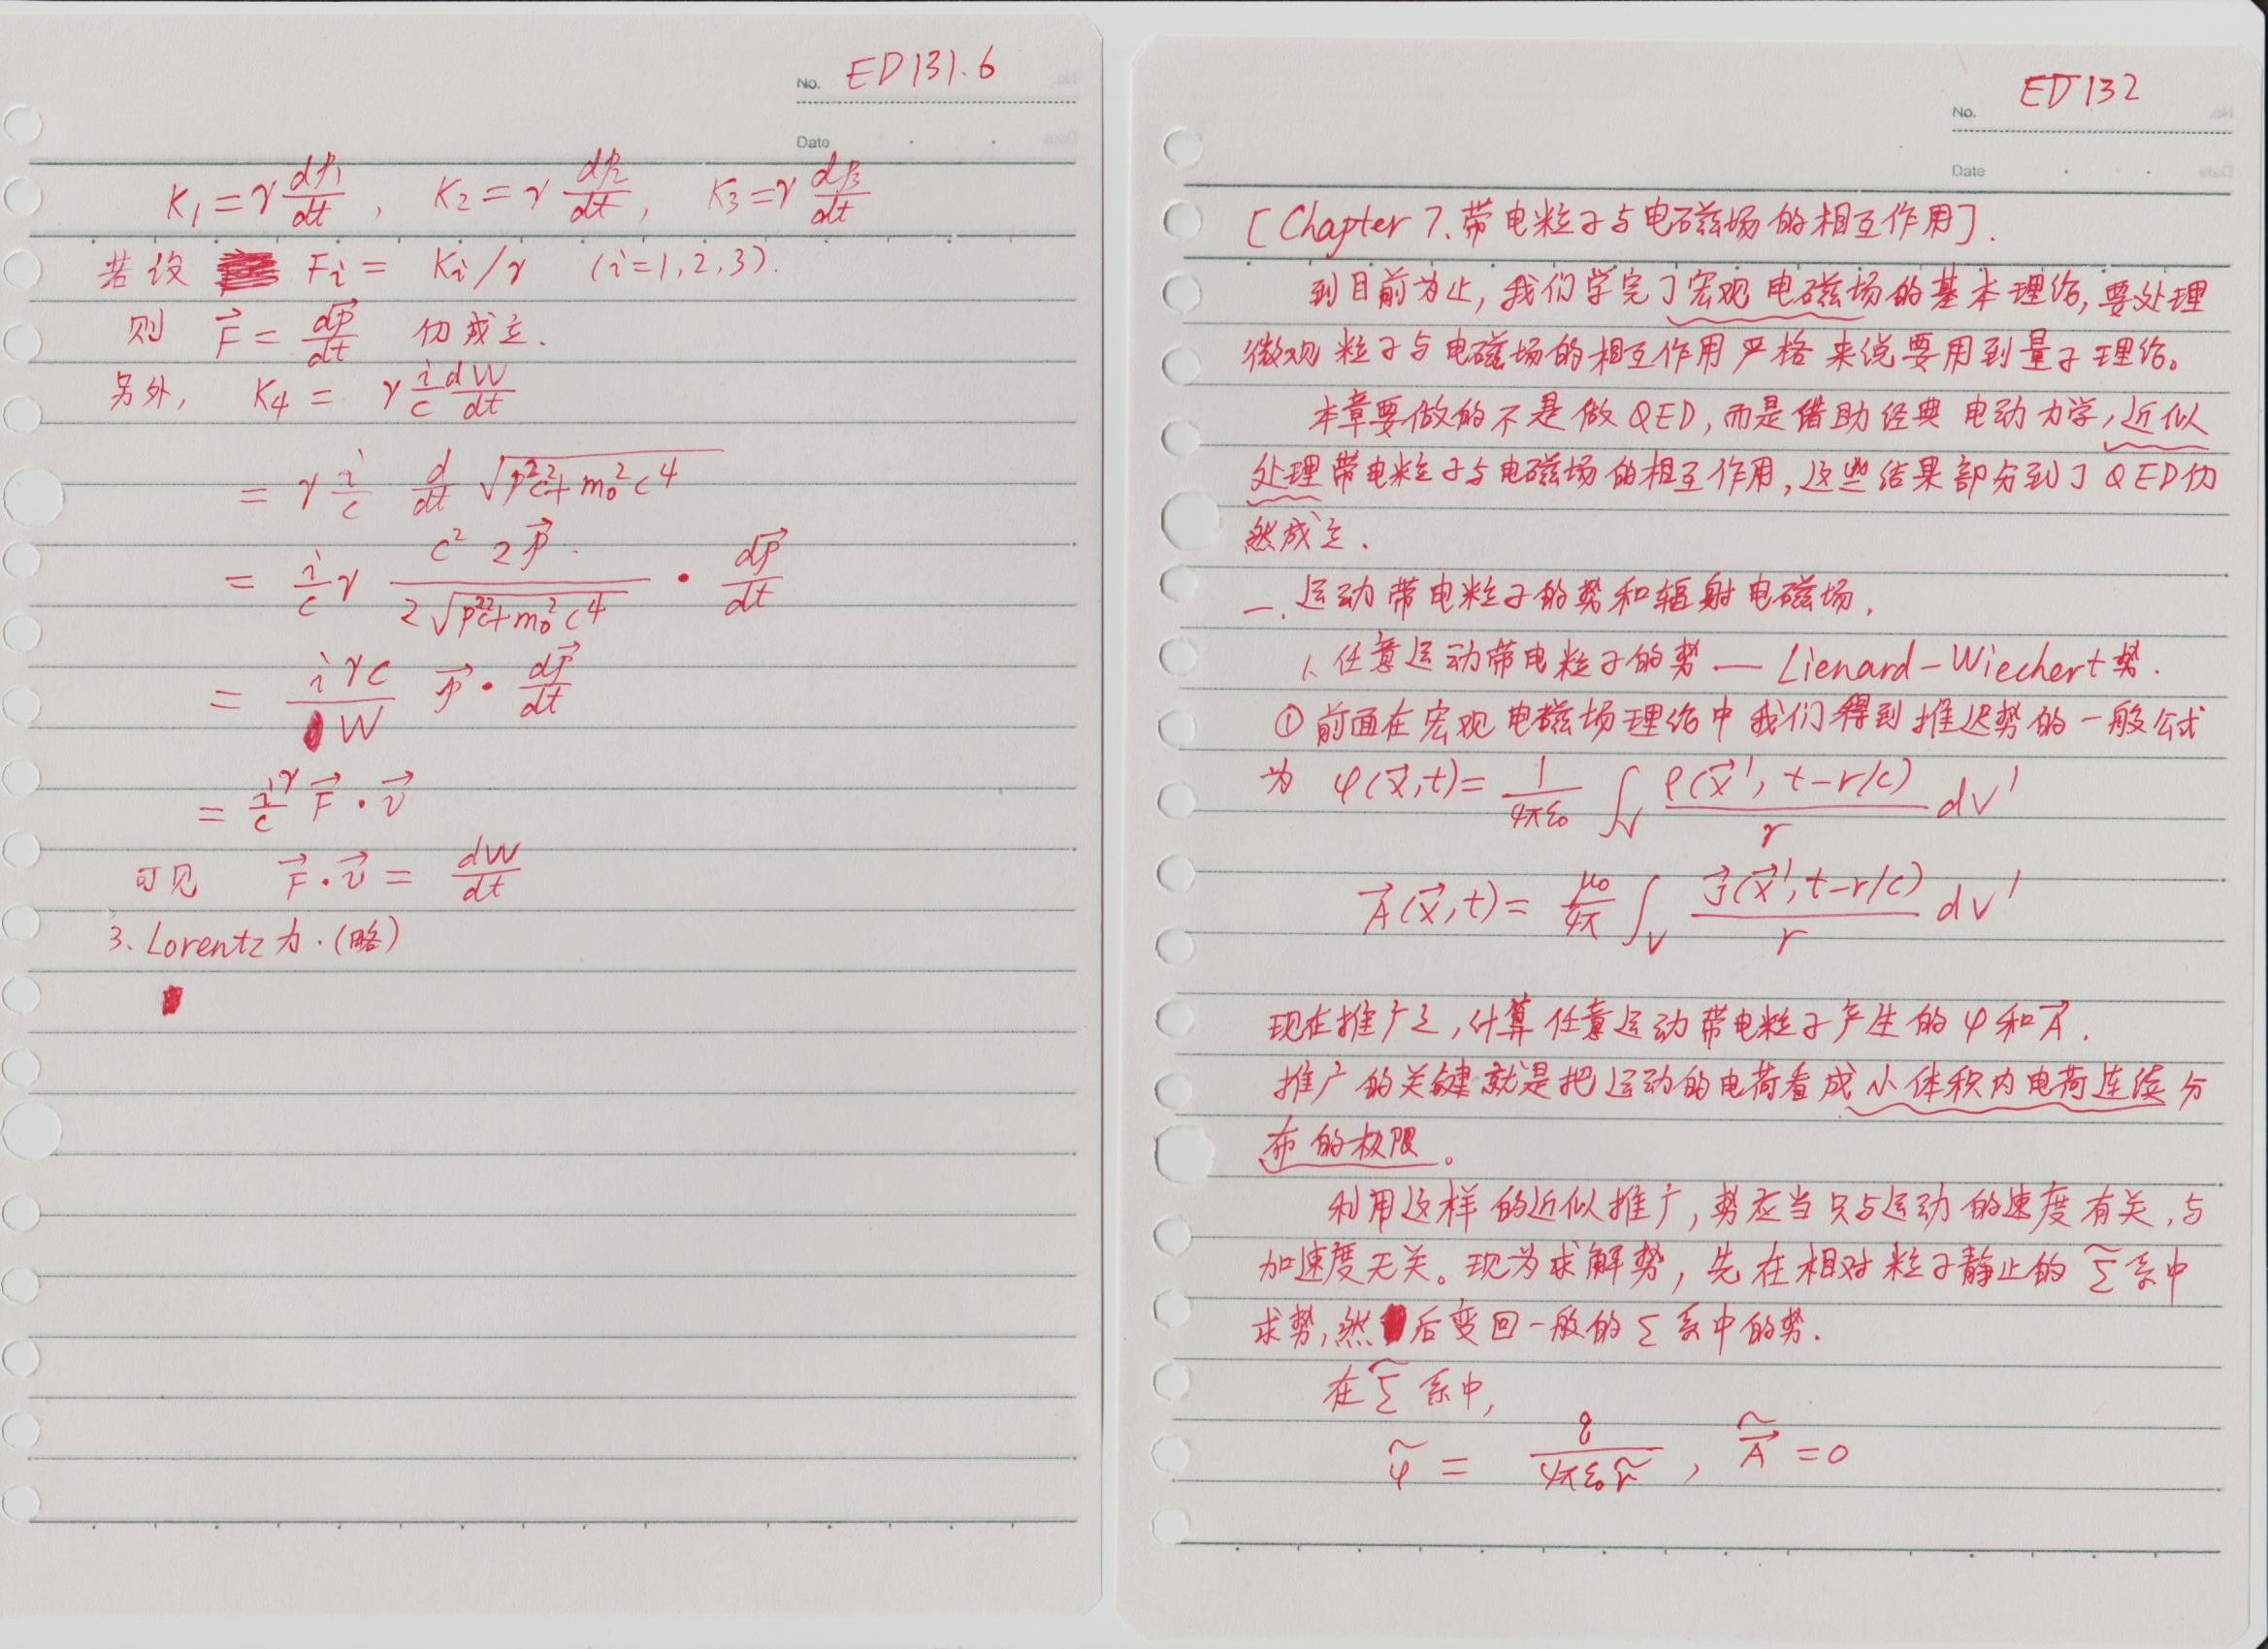 No. ED131.6
Date
K₁ = γ dp₁/dt , K₂ = γ dp₂/dt , K₃ = γ dp₃/dt
若设 Fi = Ki/γ (i=1,2,3).
则 F⃗ = dp⃗/dt 仍成立.
另外, K₄ = γ i/c dW/dt
= γ i/c d/dt √(p²c²+m₀²c⁴)
= i/c γ c² 2p⃗ / 2√(p²c²+m₀²c⁴) · dp⃗/dt
= iγc/W p⃗ · dp⃗/dt
= iγ/c F⃗ · v⃗
可见 F⃗ · v⃗ = dW/dt
3. Lorentz力.(略)
No. ED132
Date
[Chapter 7. 带电粒子与电磁场的相互作用].
到目前为止, 我们学完了宏观电磁场的基本理论, 要处理
微观粒子与电磁场的相互作用严格来说要用到量子理论。
本章要做的不是做QED, 而是借助经典电动力学, 近似
处理带电粒子与电磁场的相互作用, 这些结果部分到了QED仍
然成立.
一. 运动带电粒子的势和辐射电磁场.
1. 任意运动带电粒子的势 — Lienard-Wiechert势.
① 前面在宏观电磁场理论中我们得到推迟势的一般公式
为 φ(x⃗,t) = 1/4πε₀ ∫_V ρ(x⃗′, t-r/c)/r dV′
A⃗(x⃗,t) = μ₀/4π ∫_V J⃗(x⃗′, t-r/c)/r dV′
现在推广之, 计算任意运动带电粒子产生的φ和A⃗.
推广的关键就是把运动的电荷看成小体积内电荷连续分
布的极限。
利用这样的近似推广, 势应当只与运动的速度有关, 与
加速度无关。现为求解势, 先在相对粒子静止的Σ̃系中
求势, 然后变回一般的Σ系中的势.
在Σ̃系中,
φ̃ = q/4πε₀r̃ , A⃗̃ = 0